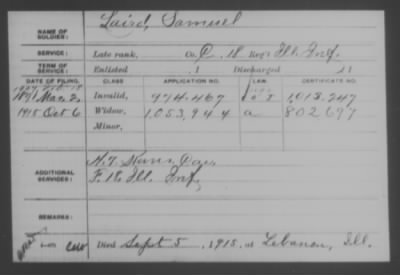 NAME OF SOLDIER: Laird, Samuel
SERVICE: Late rank, Co. D. 18 Reg't Ill. Inf.
TERM OF SERVICE: Enlisted , 1 Discharged , 1
DATE OF FILING. CLASS. APPLICATION NO. LAW. CERTIFICATE NO.
1891 Mar. 2. Invalid, 974.467 1,013.247
1915 Oct 6 Widow, 1,053,944 a 802697
Minor,
ADDITIONAL SERVICES:
F. 18. Ill. Inf,
REMARKS:
Died Sept 5, 1915, at Lebanon, Ill.